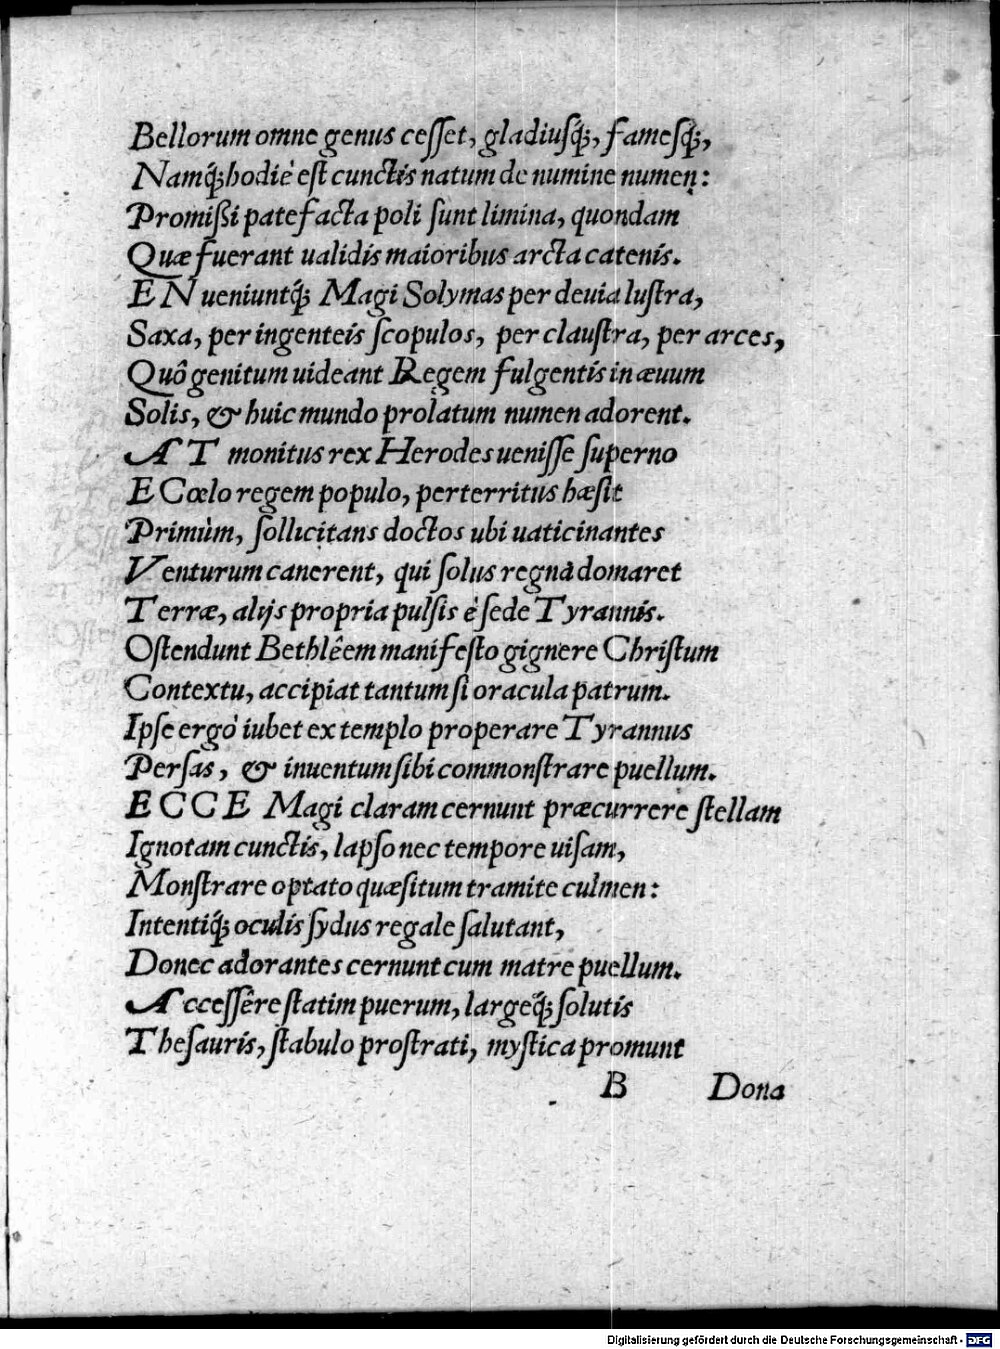 Bellorum omne genus ceſſet, gladiuſq́;, fameſq́;,
Namq́; hodiè eſt cunctis natum de numine numen:
Promißi patefacta poli ſunt limina, quondam
Quæ fuerant ualidis maioribus arcta catenis.
EN ueniuntq́; Magi Solymas per deuia luſtra,
Saxa, per ingenteis ſcopulos, per clauſtra, per arces,
Quô genitum uideant Regem fulgentis in æuum
Solis, & huic mundo prolatum numen adorent.
AT monitus rex Herodes ueniſſe ſuperno
E Cœlo regem populo, perterritus hæſit
Primùm, ſollicitans doctos ubi uaticinantes
Venturum canerent, qui ſolus regna domaret
Terræ, alijs propria pulſis è ſede Tyrannis.
Oſtendunt Bethlêem manifeſto gignere Chriſtum
Contextu, accipiat tantum ſi oracula patrum.
Ipſe ergò iubet extemplo properare Tyrannus
Perſas, & inuentum ſibi commonſtrare puellum.
ECCE Magi claram cernunt præcurrere ſtellam
Ignotam cunctis, lapſo nec tempore uiſam,
Monſtrare optato quæſitum tramite culmen:
Intentiq́; oculis ſydus regale ſalutant,
Donec adorantes cernunt cum matre puellum.
Acceſſêre ſtatim puerum, largeq́; ſolutis
Theſauris, ſtabulo proſtrati, myſtica promunt
B Dona
Digitalisierung gefördert durch die Deutsche Forschungsgemeinschaft - DFG